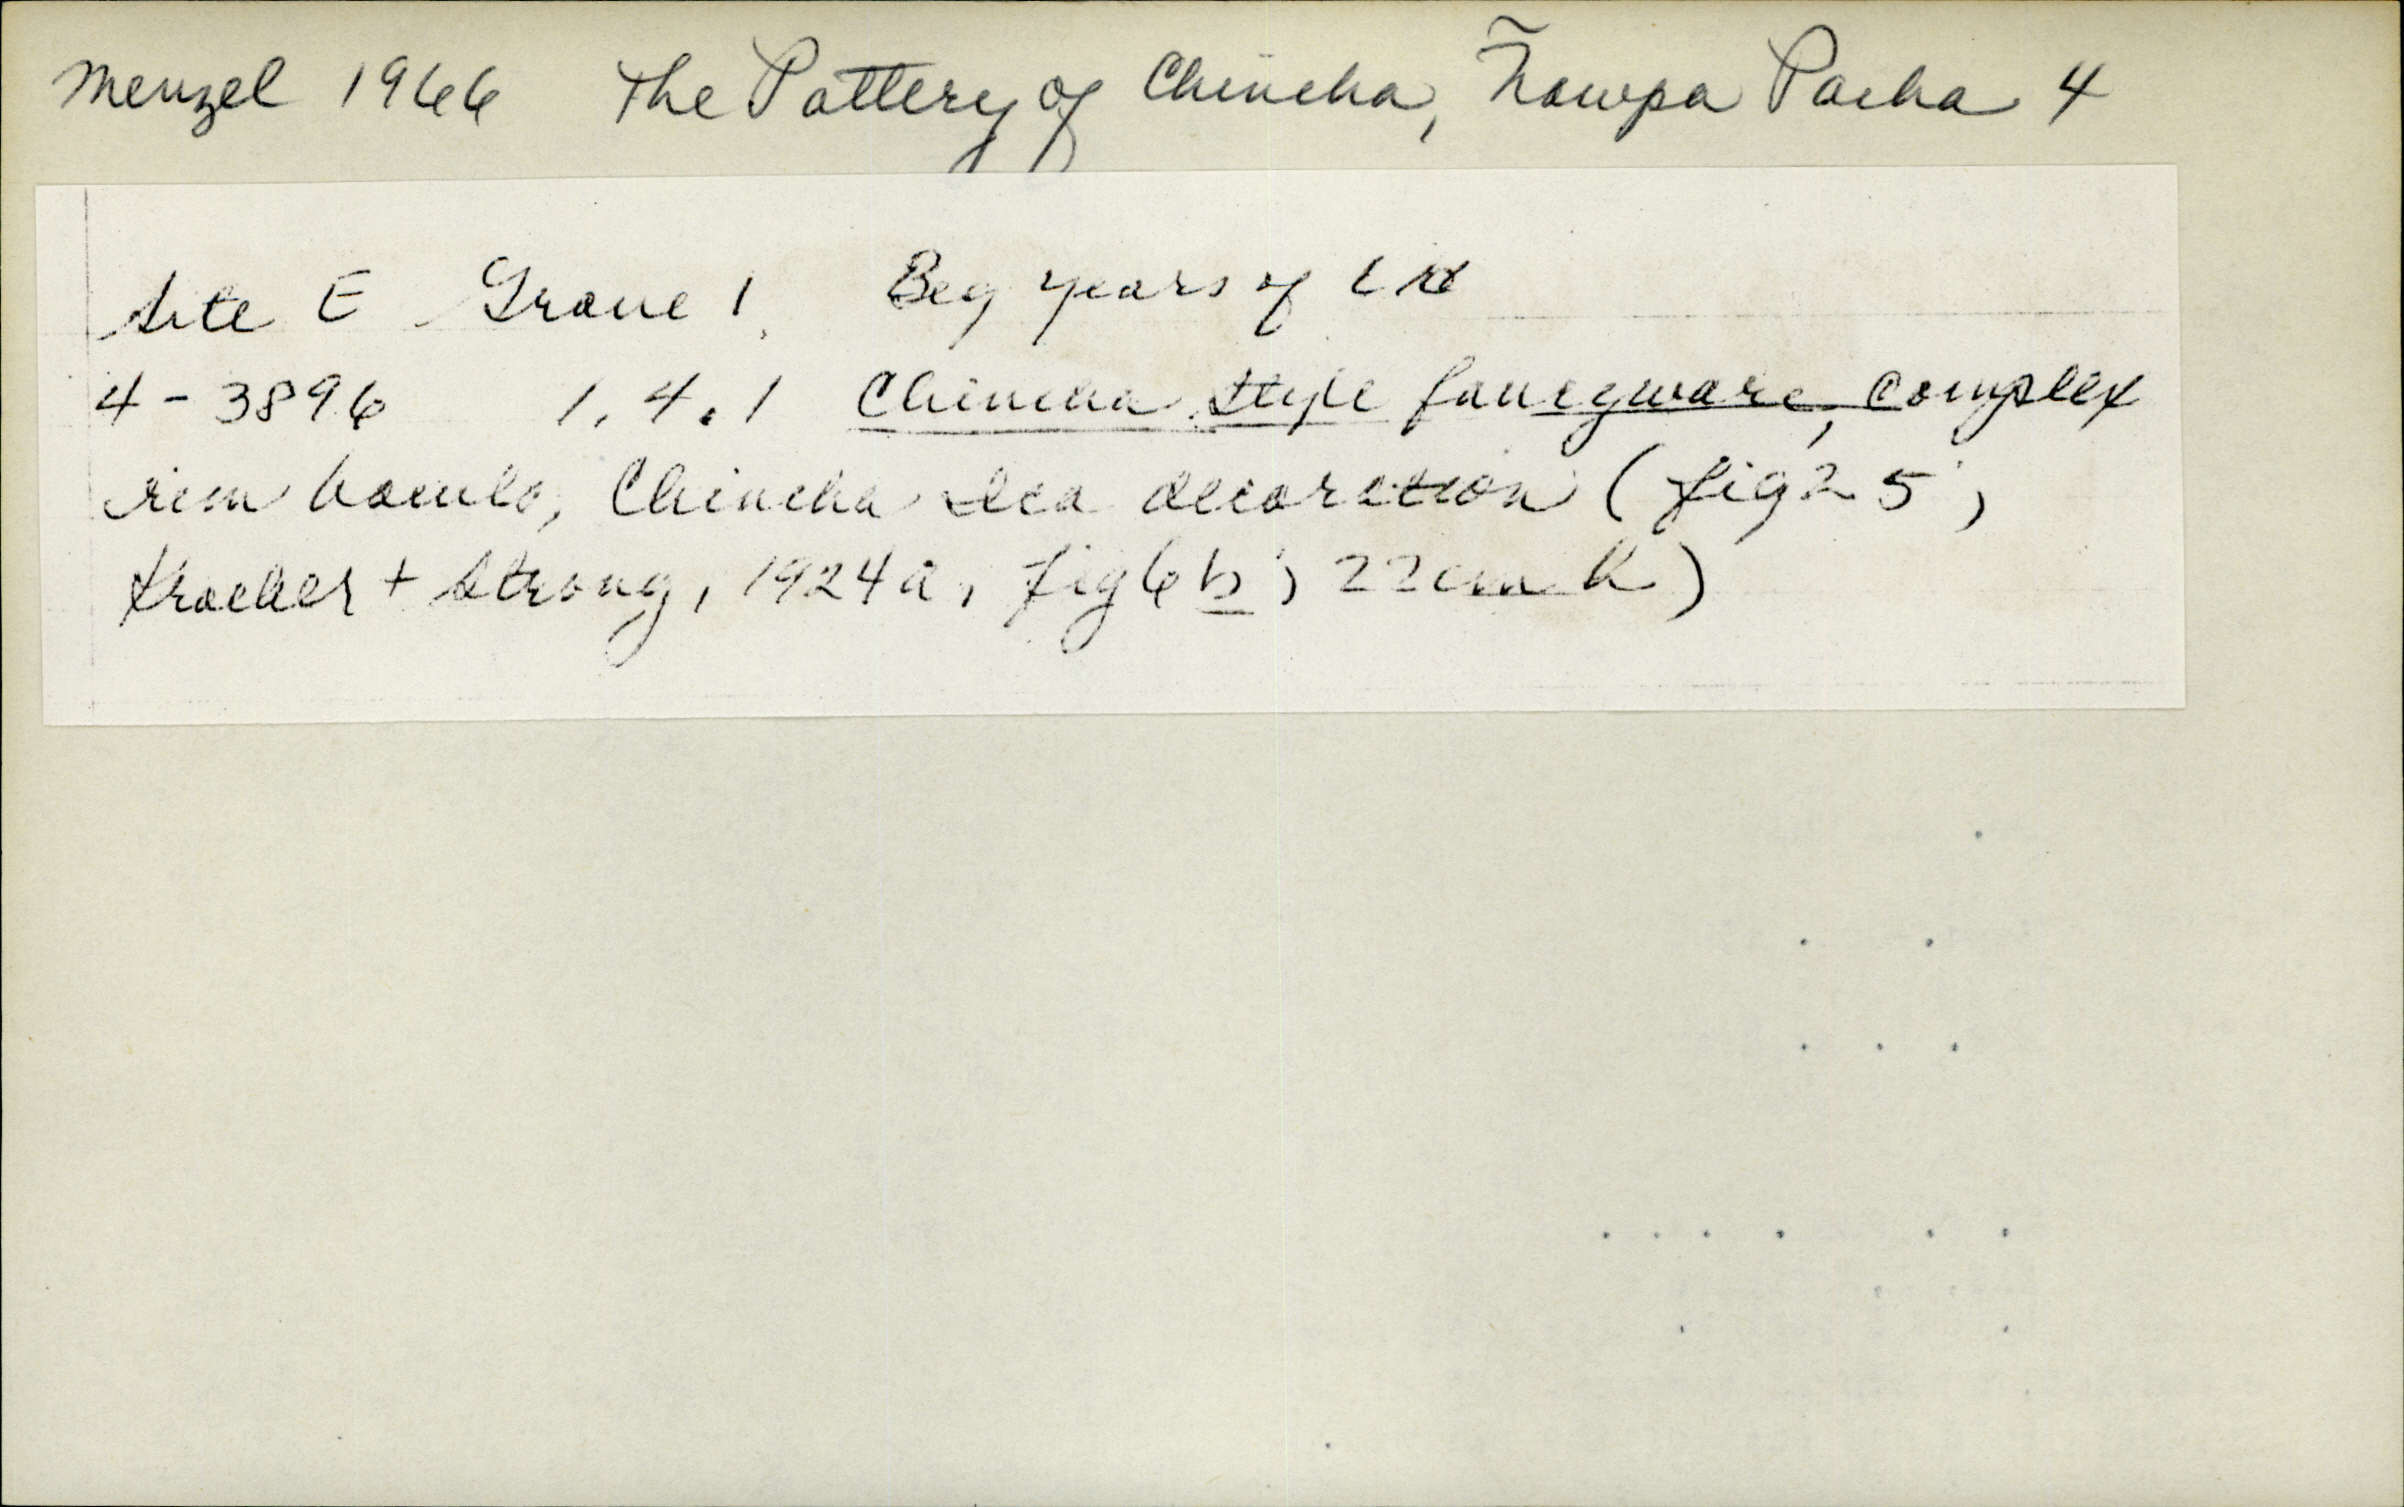 Menzel 1966 The Pottery of Chincha, Ñawpa Pacha 4
Site E Grave 1. Beg years of
4-3896 1.4.1 Chincha style fancyware, complex
rim bowls, Chincha Ica decoration (fig 25;
Kroeber + Strong, 1924a, fig 6b; 22cm h)